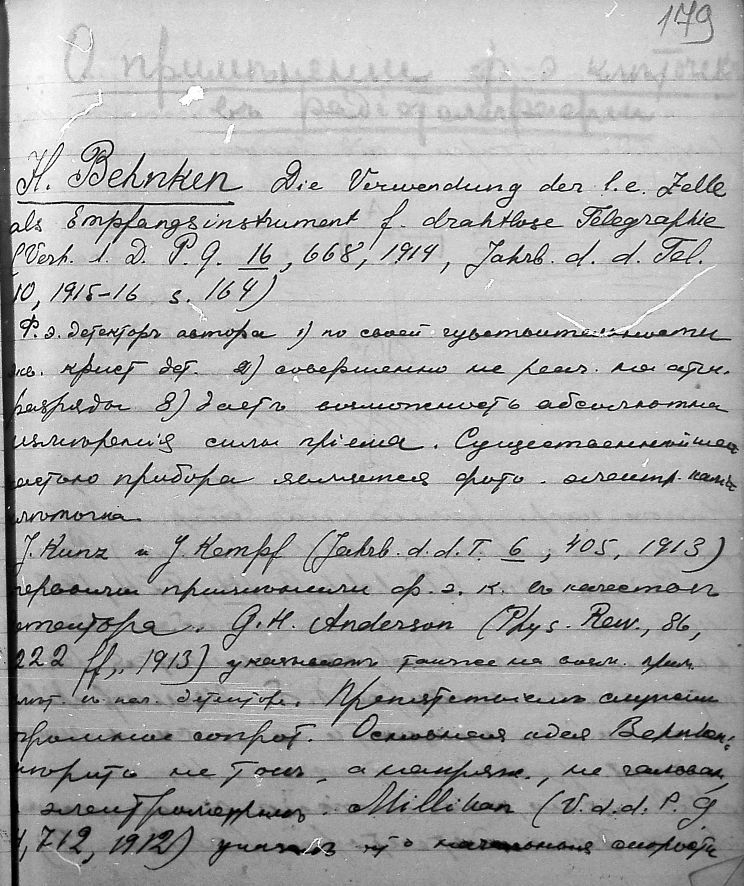 179
О применении ф-э клеточек
въ радіотелеграфіи.
H. Behnken Die Verwendung der l.e. Zelle
als Empfangsinstrument f. drahtlose Telegraphie
(Verh. d. D. P. G. 16, 668, 1914, Jahrb. d. d. Tel.
10, 1915-16 s. 164)
Ф. э. детекторъ автора 1) по своей чувствительности
крист дет. 2) совершенно не реаг. на атм.
разряды 3) даетъ возможность абсолютна
измѣренія силы пріема. Существеннѣйшей
частью прибора является фото. электр. кали

J. Kunz и J. Kempf (Jahrb. d. d. T. 6, 405, 1913)
первыми примѣнили ф. э. к. въ качествѣ
детектора. G. H. Anderson (Phys. Rew., 86,
222 ff., 1913) указываетъ также на возм. прим.
въ кач. детектора. Препятствіемъ служили
громадное сопрот. Основная идея Behnken
мѣрить не токъ, а напряж., не гальван,
электрометромъ. Millikan (V. d. d. P. G
712, 1912) указалъ что начальная скорость